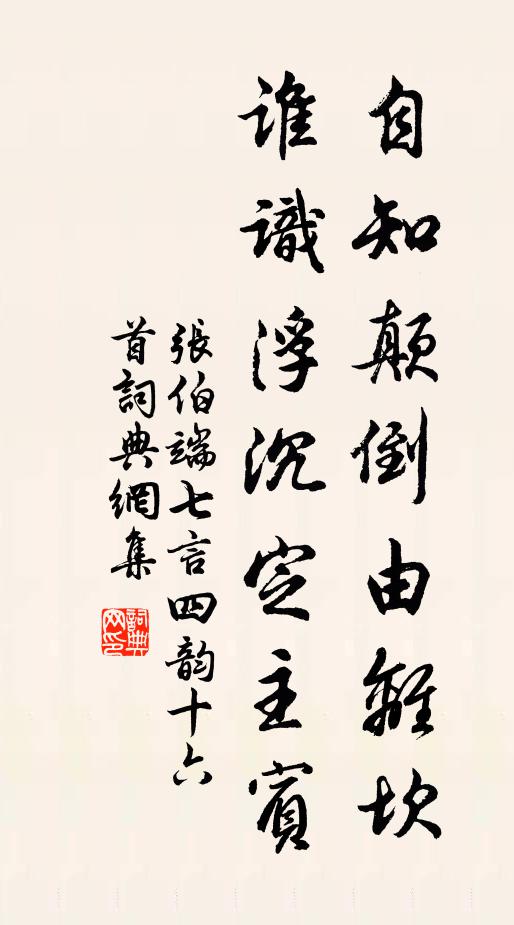 自知顛倒由離坎
誰識浮沉定主賓
張伯端七言四韵十六
首詞典網集
詞典網印